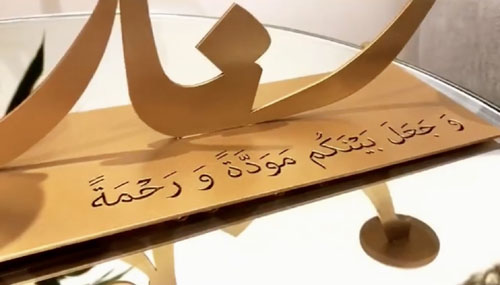 وَ جَعَلَ بَيْنَكُم مَوَدَّةً وَ رَحْمَةً